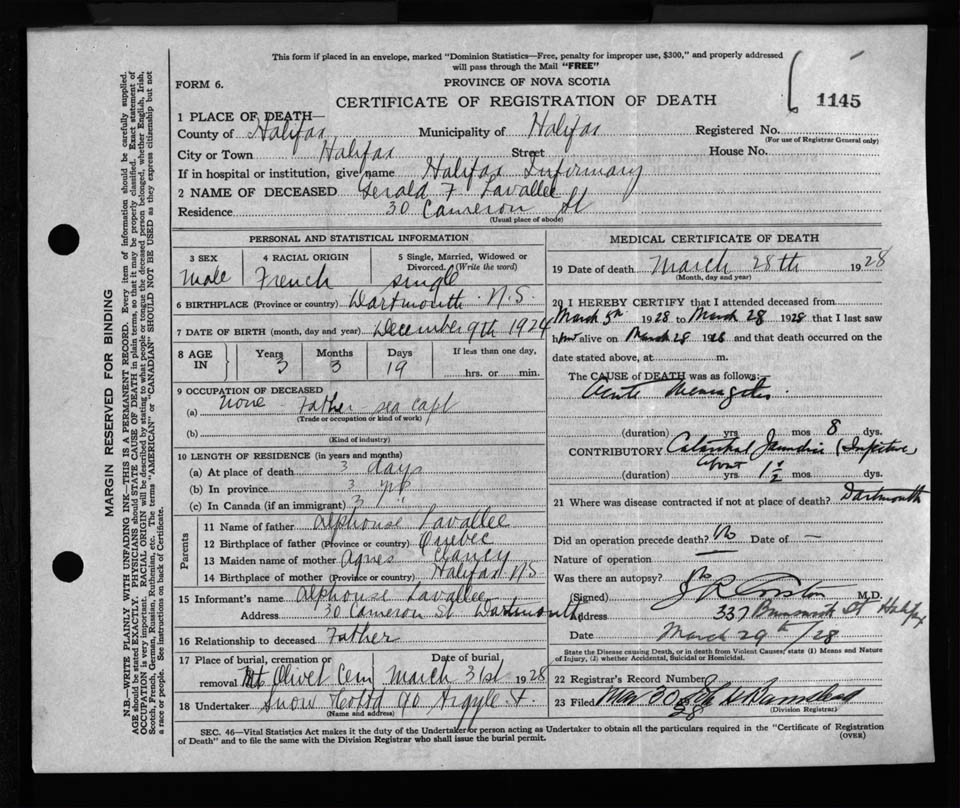 This form if placed in an envelope, marked "Dominion Statistics—Free, penalty for improper use, $300," and properly addressed
will pass through the Mail "FREE"
FORM 6.
PROVINCE OF NOVA SCOTIA
CERTIFICATE OF REGISTRATION OF DEATH
1145
1 PLACE OF DEATH—
County of Halifax Municipality of Halifax Registered No.
(For use of Registrar General only)
City or Town Halifax Street House No.
If in hospital or institution, give name Halifax Infirmary
2 NAME OF DECEASED Gerald F Lavallee
Residence 30 Cameron St
(Usual place of abode)
PERSONAL AND STATISTICAL INFORMATION
3 SEX 4 RACIAL ORIGIN 5 Single, Married, Widowed or
Divorced. (Write the word)
Male French single
6 BIRTHPLACE (Province or country) Dartmouth N.S.
7 DATE OF BIRTH (month, day and year) December 9th 1924
8 AGE IN Years 3 Months 3 Days 19 If less than one day,
hrs. or min.
9 OCCUPATION OF DECEASED
(a) None Father sea capt
(Trade or occupation or kind of work)
(b)
(Kind of industry)
10 LENGTH OF RESIDENCE (in years and months)
(a) At place of death 3 days
(b) In province 3 yrs
(c) In Canada (if an immigrant) 3 "
Parents
11 Name of father Alphonse Lavallee
12 Birthplace of father (Province or country) Quebec
13 Maiden name of mother Agnes Clancy
14 Birthplace of mother (Province or country) Halifax N.S
15 Informant's name Alphonse Lavallee
Address 30 Cameron St Dartmouth
16 Relationship to deceased Father
17 Place of burial, cremation or Date of burial
removal Mt Olivet Cem March 31st 1928
18 Undertaker Snow & Co Ltd 90 Argyle St
(Name and address)
MEDICAL CERTIFICATE OF DEATH
19 Date of death March 28th 1928
(Month, day and year)
20 I HEREBY CERTIFY that I attended deceased from
March 1928 to March 28 1928 that I last saw
him alive on March 28 1928 and that death occurred on the
date stated above, at m.
The CAUSE of DEATH was as follows:—
Acute Meningitis
(duration) yrs mos 8 dys.
CONTRIBUTORY Catarrhal Jaundice (Infective)
(duration) about yrs 1 1/2 mos dys.
21 Where was disease contracted if not at place of death? Dartmouth
Did an operation precede death? No Date of —
Nature of operation
Was there an autopsy? No
(Signed) M.D.
Address 337 Brunswick St Halifax
Date March 29th/28
State the Disease causing Death, or in death from Violent Causes, state (1) Means and Nature
of Injury, (2) whether Accidental, Suicidal or Homicidal.
22 Registrar's Record Number
23 Filed Mar 30 28
(Division Registrar)
SEC. 46—Vital Statistics Act makes it the duty of the Undertaker or person acting as Undertaker to obtain all the particulars required in the "Certificate of Registration
of Death" and to file the same with the Division Registrar who shall issue the burial permit.
(OVER)
MARGIN RESERVED FOR BINDING
N.B.—WRITE PLAINLY WITH UNFADING INK—THIS IS A PERMANENT RECORD. Every item of information should be carefully supplied.
AGE should be stated EXACTLY. PHYSICIANS should STATE CAUSE OF DEATH in plain terms, so that it may be properly classified. Exact statement of
OCCUPATION is very important. RACIAL ORIGIN will be described by stating to what people or tongue the deceased person belonged, whether English, Irish,
Scotch, French, German, Russian, Ruthenian, etc. The terms "AMERICAN" or "CANADIAN" SHOULD NOT BE USED as they express citizenship but not
a race or people. See instructions on back of Certificate.